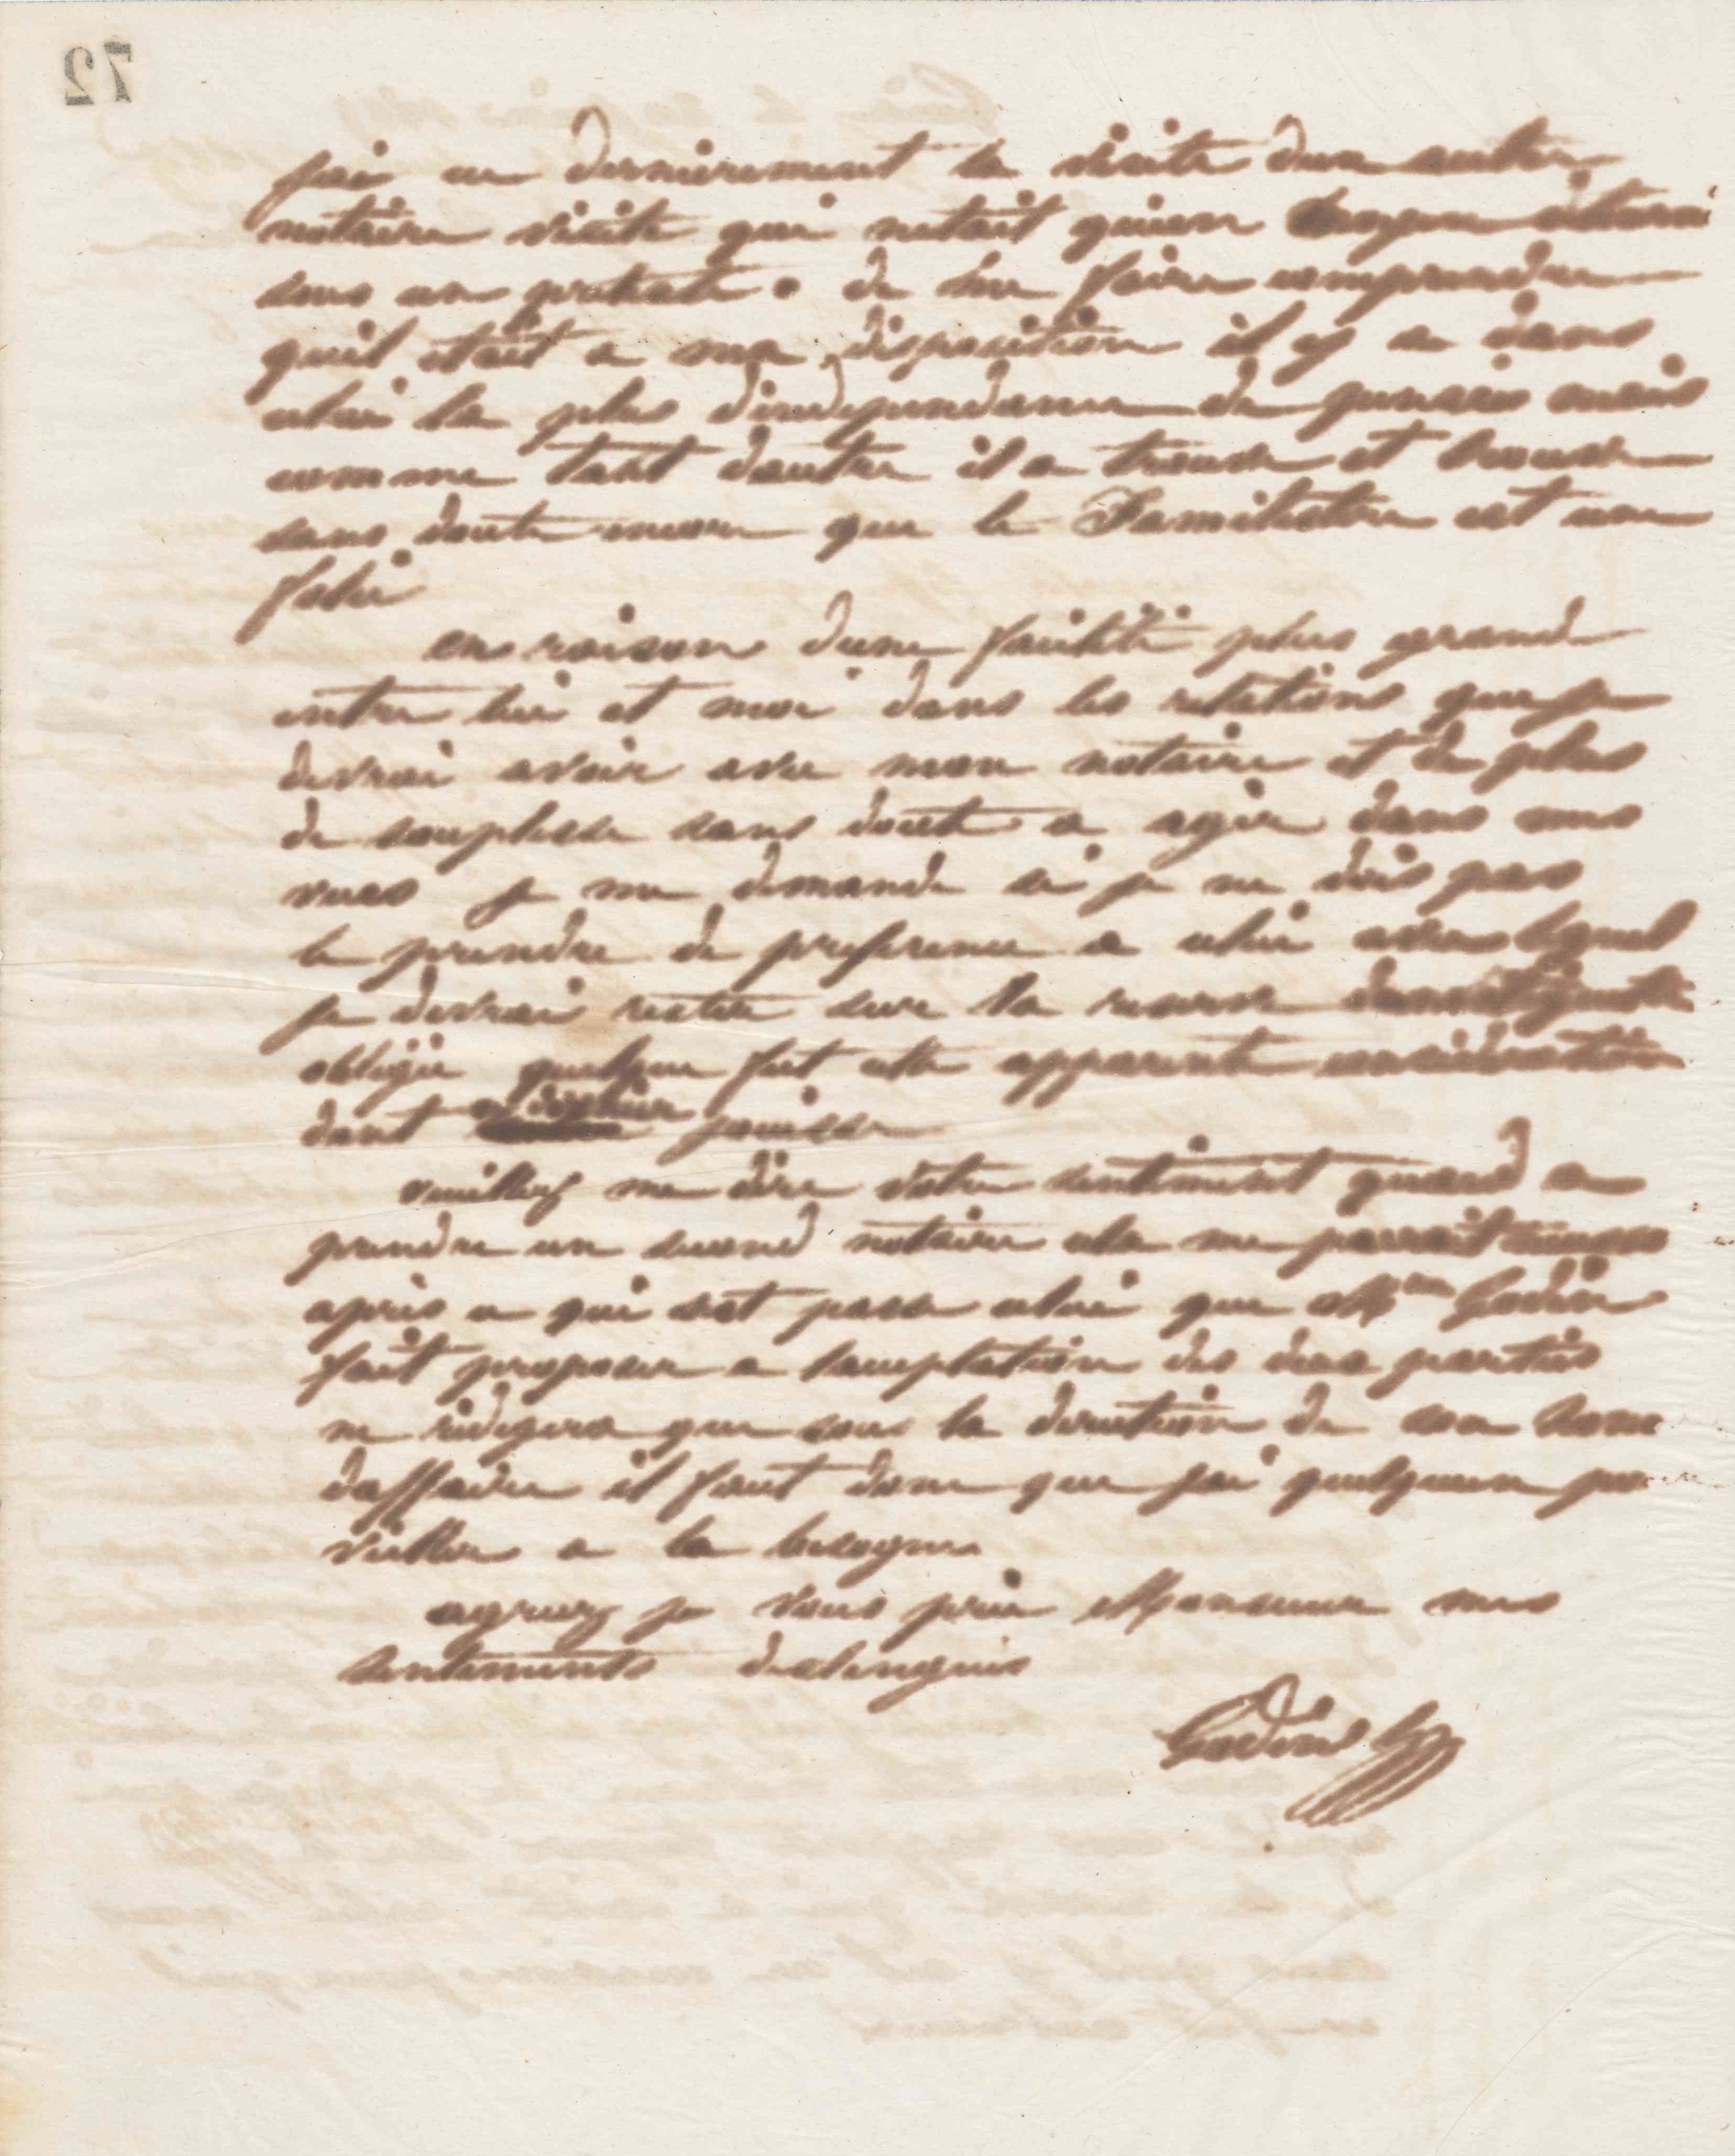 72
jai eu dernierement la visite dun autre
notaire visite qui netait quun moyen
sous un pretexte de me faire comprendre
quil etait a ma disposition il y a dans
celui la plus dindependance de pensée mais
comme tant dautre il a trouvé et trouve
sans doute encore que le Familistère est une
folie
en raison dune facilité plus grande
entre lui et moi dans les relations que je
devrai avoir avec mon notaire et de plus
de souplesse sans doute a agir dans mes
vues je me demande si je ne dois pas
le prendre de preference a celui avec lequel
je devrai rester sur la reserve
obligée quelque fut cette apparente consideration
dont ce dernier jouisse
veuillez me dire votre sentiment quand a
prendre un second notaire cela me parrait
après ce qui sest passé celui que Mme Godin
fait proposer a lacceptation des deux parties
ne redigera que sous la direction de son home
daffaire il faut donc que jai quelquun
veiller a la besogne
agreez je vous prie Monsieur mes
sentiments distingués
Godin